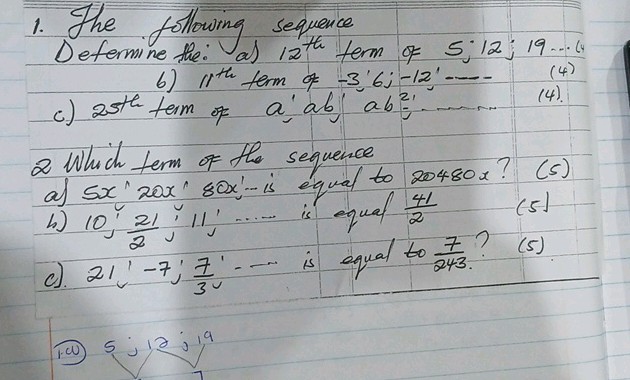 1. The following sequence
Determine the: a) 12th term of 5; 12; 19 ... (4
b) 11th term of -3; 6; -12; ----- (4)
c) 25th term of a; ab; ab²; ........ (4).
2 Which term of the sequence
a) 5x; 20x; 80x; -- is equal to 20480x? (5)
b) 10; 21/2; 11; ..... is equal 41/2 (5)
c). 21; -7; 7/3; ---- is equal to 7/243? (5)
1.a) 5 ; 12 ; 19